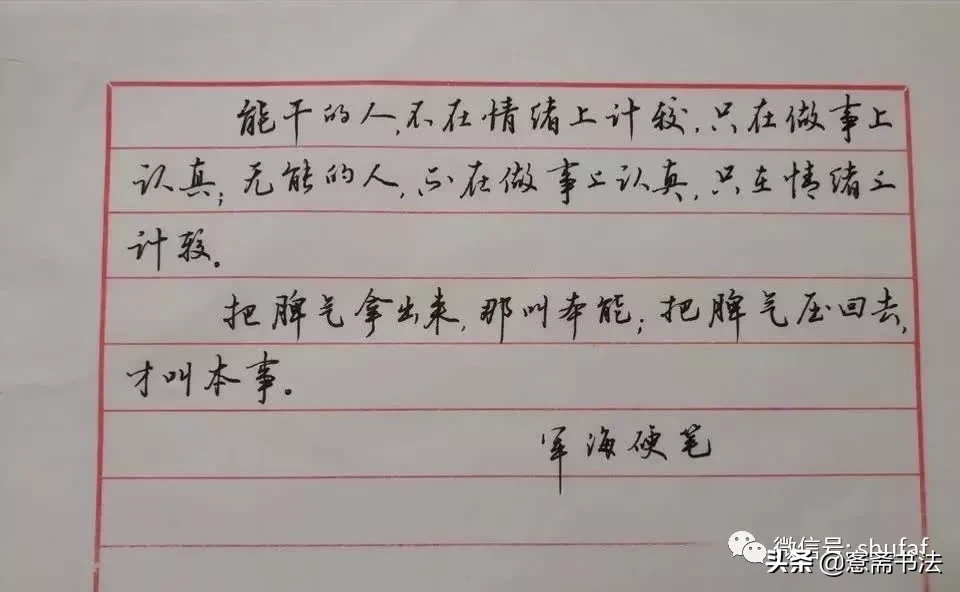 能干的人,不在情绪上计较,只在做事上
认真;无能的人,不在做事上认真,只在情绪上
计较。
把脾气拿出来,那叫本能;把脾气压回去,
才叫本事。
军海硬笔
微信号: shufaf
头条@窓斋书法